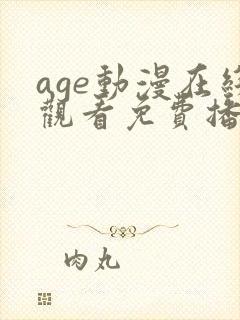 age動漫在線
觀看免費播
肉丸